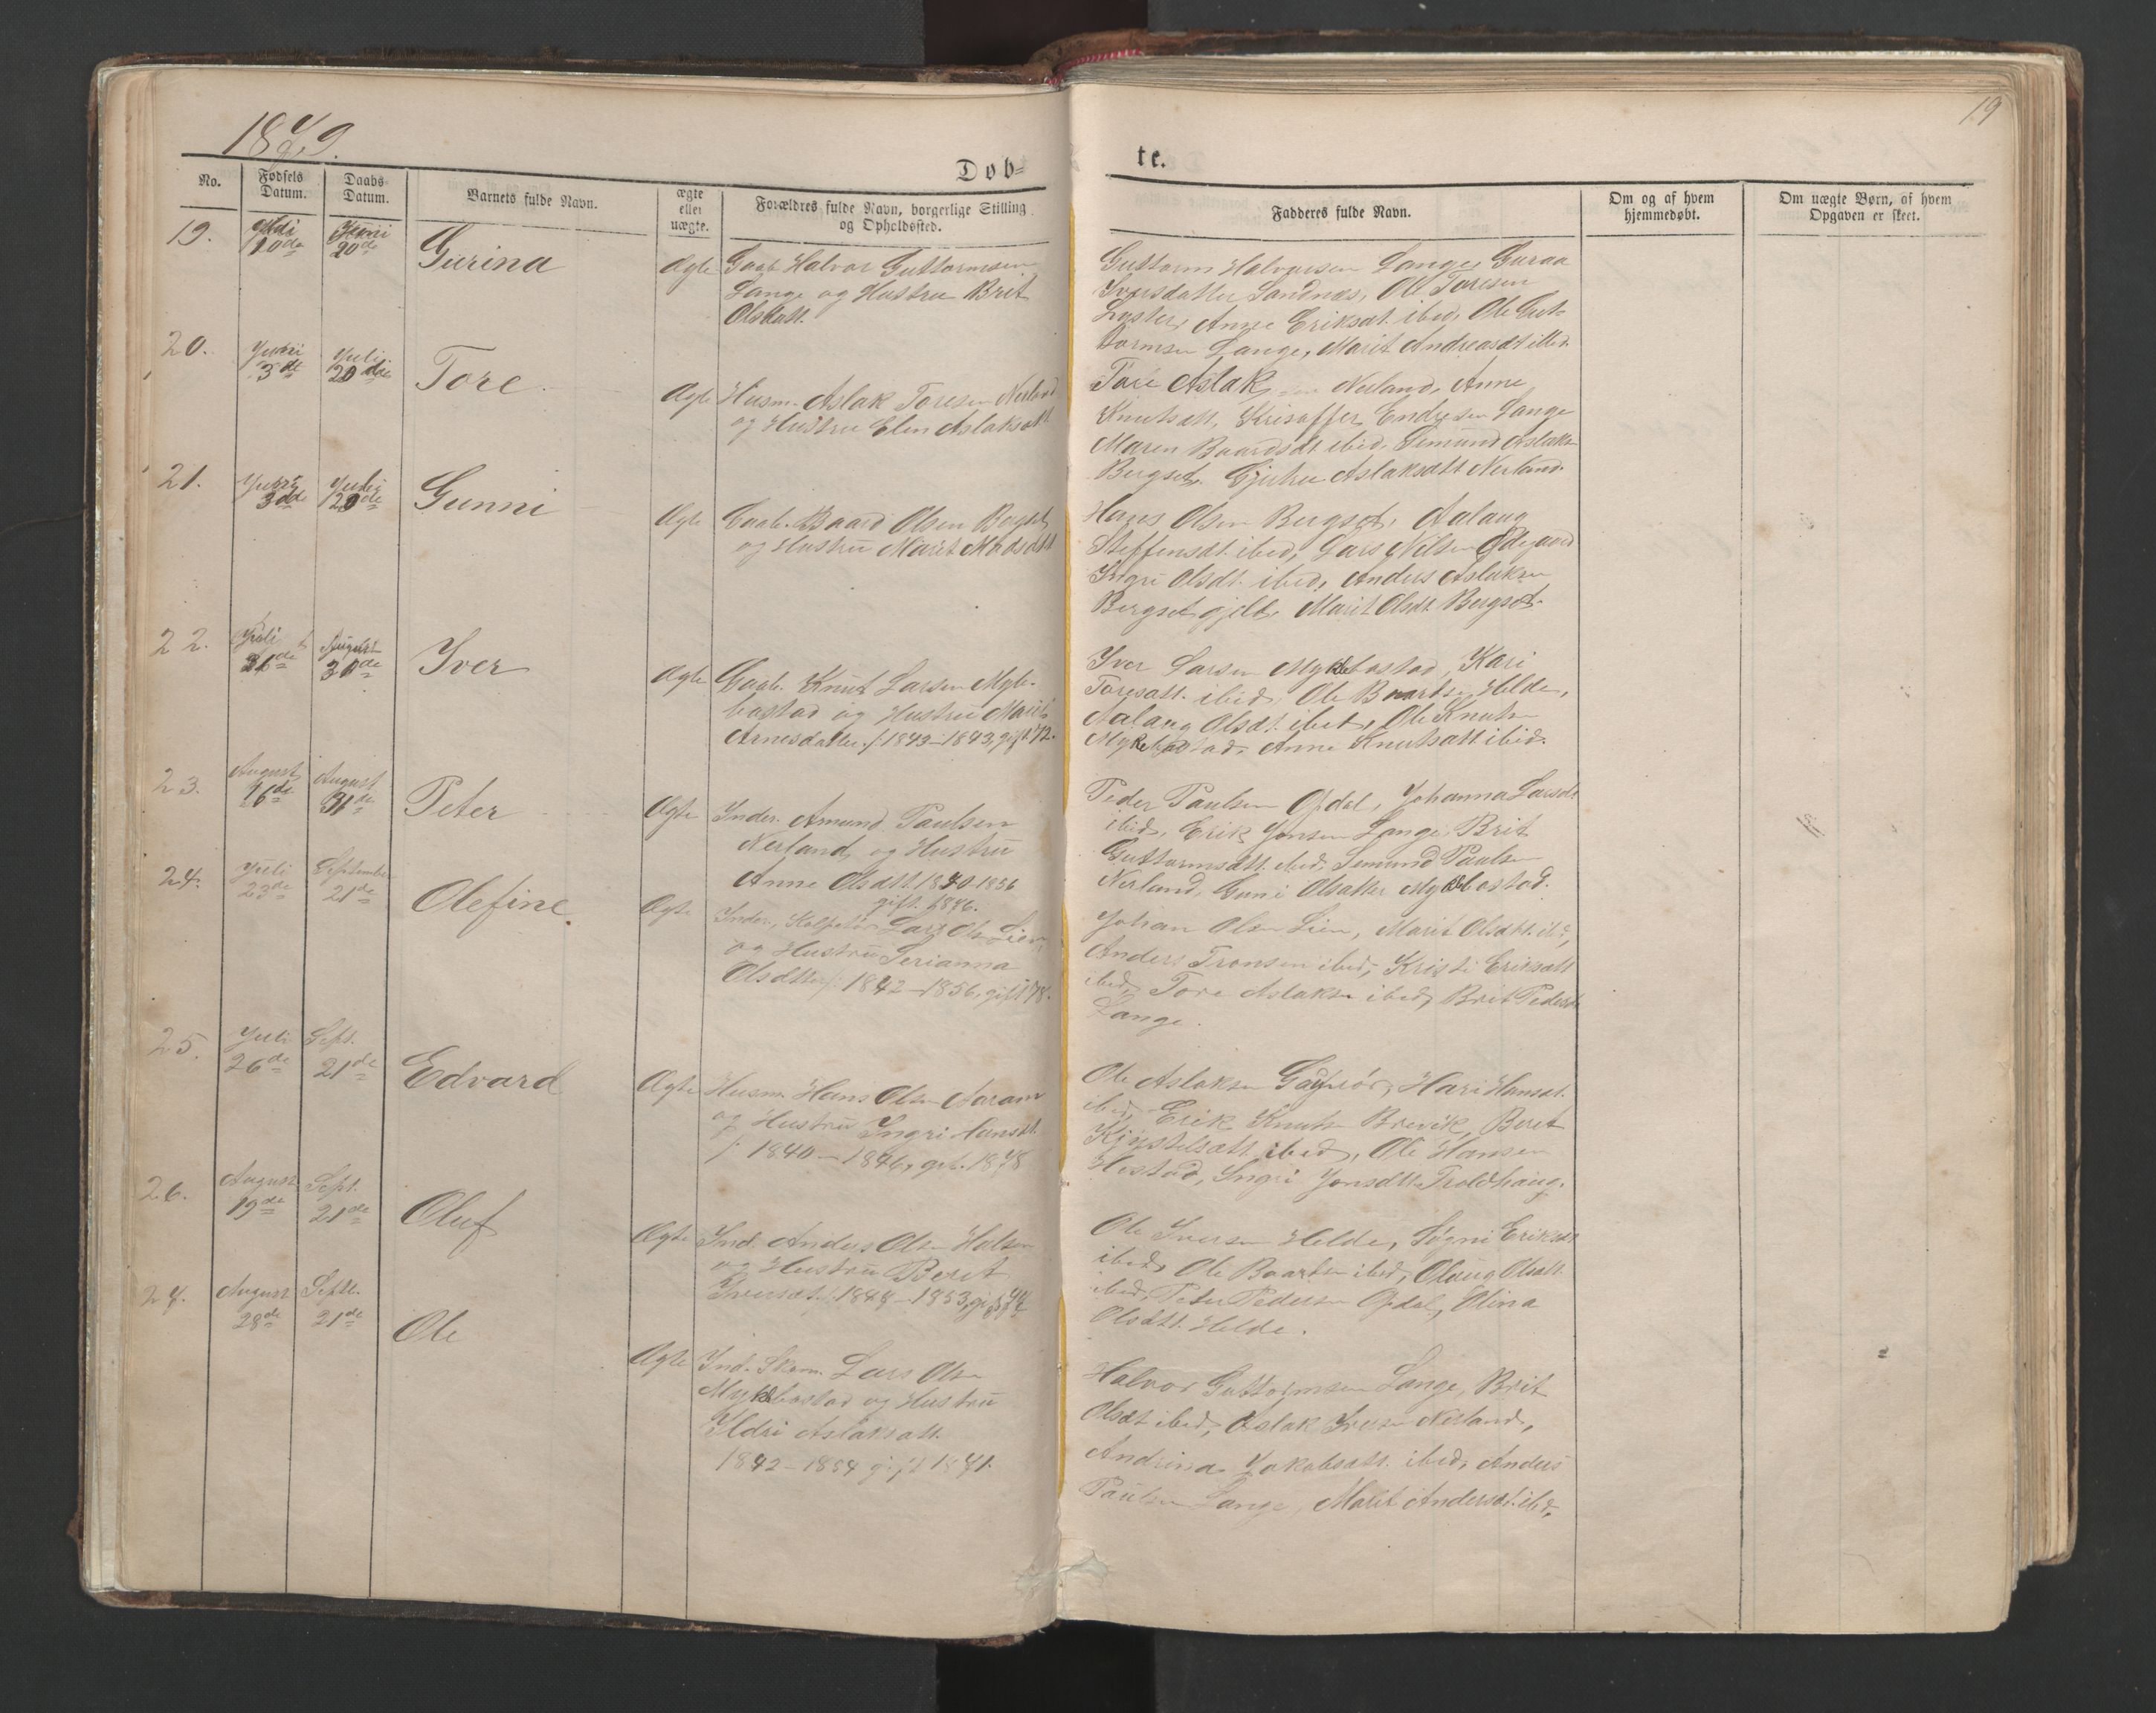 1879.
19
Døb=
te.
No.
Fødsels Datum.
Daabs Datum.
Barnets fulde Navn.
ægte eller uægte.
Forældres fulde Navn, borgerlige Stilling og Opholdssted.
Fadderes fulde Navn.
Om og af hvem hjemmedøbt.
Om uægte Børn, af hvem Opgaven er skeet.
19.
10de
Juni 20de
Gurina
Ægte
Gaab. Halvor Guttormsen
Lange og Hustru Brit
Olsdatt.
Guttorm Halvorsen Lange, Guroa
Iversdatter Sandnes, Ole Toresen
Anne Eriksdt. ibid, Ole Gut-
tormsen Lange, Marit Andreasdt ibid.
20.
Juni 3de
Juli 20de
Tore
Ægte
Husm. Aslak Toresen Nerland
og Hustru Elen Aslaksdtt
Tore Aslak Nerland, Anne
Knutsdtt, Kristoffer Endresen Lange
Maren Baardsdt ibid, Semund Aslaksen
Bergset, Aslaksdtt Nerland.
21.
Juni 3de
Juli 20de
Gunni
Ægte
Gaab. Baard Olsen Bergset
og Hustru Marit Madsdtt
Hans Olsen Bergset, Aalaug
Steffensdt. ibid, Lars Nilsen Ødegaard
Ingri Olsdt. ibid, Anders Aslaksen
Bergsetgjelde Marit Olsdt. Bergset.
22.
Juli 26de
August 30de
Iver
Ægte
Gaab. Knut Larsen Myk-
bostad og Hustru Marit
Arnesdatter. /: 1843-1843, gift 72.
Iver Larsen Myklebostad, Kari
Toresdtt. ibid, Ole Baardsen Helde,
Aalaug Olsdt. ibid, Ole Knutsen
Myklebostad, Anne Knutsdtt ibid.
23.
August 16de
August 31de
Peter
Ægte
Inder. Amund Paulsen
Nerland, og Hustru
Anne Olsdtt. 1840-1856
gift. 1876.
Peder Paulsen Opdal, Johanna Larsdt
ibid, Erik Jonsen Lange, Brit
Guttormsdtt. ibid, Semund Paulsen
Nerland, Guni Olsdtter Myklebostad.
24.
Juli 23de
September 21de
Olefine.
Ægte
Inder., Lars Olsen Lien
og Hustru Serianna
Olsdtter /: 1842-1856, gift 78.
Johan Olsen Lien, Marit Olsdtt. ibid,
Anders Tronsen ibid, Kristi Eriksdtt
ibid, Tore Aslaksen ibid, Brit Pedersdt
Lange.
25.
Juli 26de
Sept. 21de
Edvard
Ægte
Husm. Hans Olsen Aaram
og Hustru Ingri Hansdt.
/: 1840-1846, gt. 1878
Ole Aslaksen Kari Hansdt.
ibid, Erik Knutsen Brevik, Beret
Kjystelsdtt. ibid, Ole Hansen
Hostad, Ingri Jonsdtt Troldhaug.
26.
August 19de
Sept. 21de
Oluf
Ægte
Ind. Anders Olsen Holsen
og Hustru Beret
Iversdt. /: 1847-1853, gift
Ole Iversen Helde, Søgni Eriksdt
ibid, Ole Baardsen ibid, Olaug Olsdtt.
ibid, Peter Pedersen Opdal, Olina
Olsdtt. Helde.
27.
August 28de
Septr. 21de
Ole
Ægte
Ind. Skom. Lars Olsen
Myklebostad og Hustru
Ildri Aslaksdtt.
1842-1854 gift 1871.
Halvor Guttormsen Lange, Brit
Olsdt ibid, Aslak Iversen Nerland,
Andrina Jakobsdtt. ibid, Anders
Paulsen Lange, Marit Andersdt. ibid.